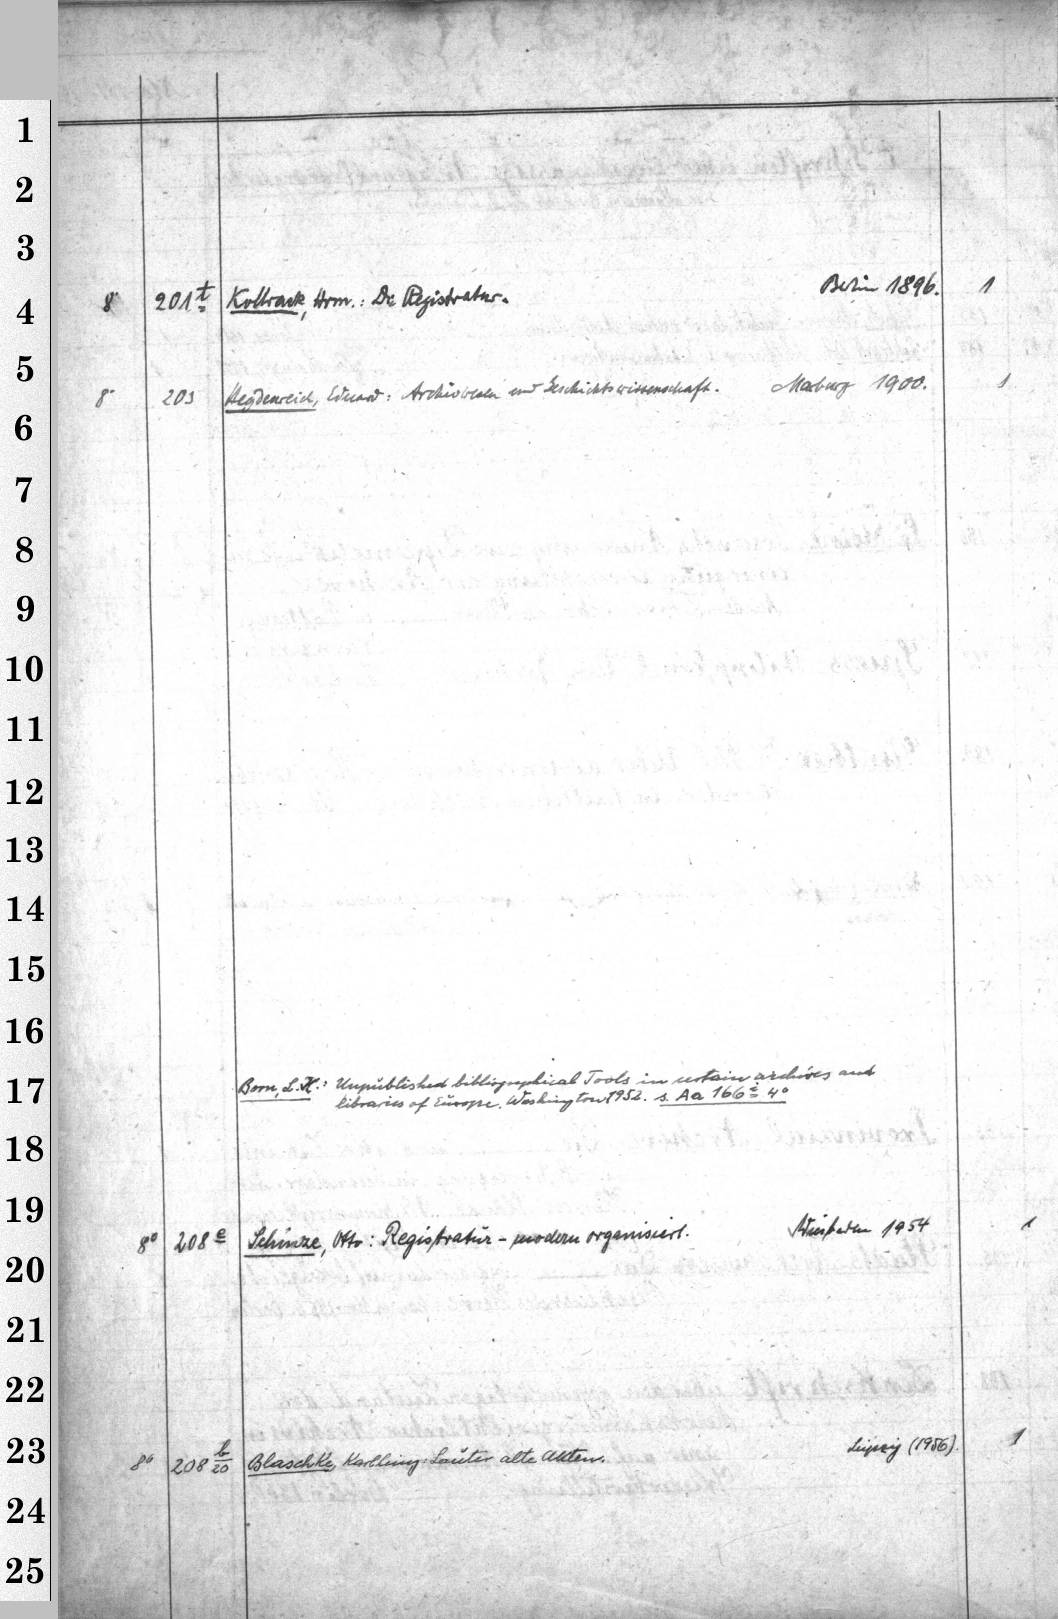 1
2
3
8° 201 t Kollrack, Hrm.: Die Registratur. Berlin 1896. 1
4
5
8° 203 Heydenreich, Eduard: Archivwesen und Geschichtswissenschaft. Marburg 1900. 1
6
7
8
9
10
11
12
13
14
15
16
Born, L. K.: Unpublished bibliographical Tools in certain archives and
17
libraries of Europe. Washington 1952. s. Aa 166 i 4°
18
19
8° 208 e Schinze, Otto: Registratur - modern organisiert. Wiesbaden 1954 1
20
21
22
23
8° 208 b/20 Blaschke, Karlheinz: Lauter alte Akten. Leipzig (1956). 1
24
25